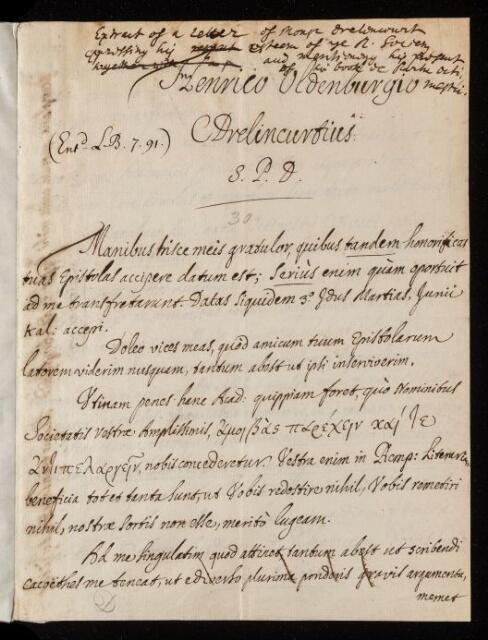 Extract of a Letter of Monsr Drelincourt
expressing his esteem of ye R. Society
and mentioning his present
together with
of his book de partu octi
mestri.
Henrico Oldenburgio
(Entd. L.B. 7. 91.)
Drelincurtius.
S. P. D.
30
Manibus hisce meis gratulor, quibus tandem honorificas
tuas Epistolas accipere datum est; Seriùs enim quàm oportuit
ad me transfretarunt. Datas siquidem 3o Idus Martias, Junii
Kal: accepi.
Doleo vices meas, quòd amicum tuum Epistolarum
latorem viderim nusquam, tantum abest ut ipsi inserviverim.
Utinam penes hanc Acad: quippiam foret, quò Nominibus
Societatis Vestræ Amplissimis, ἀμοιβὰς παρέχειν καί
ἀντιπελαργεῖν, nobis concederetur. Vestra enim in Remp: Literariam
beneficia tot et tanta sunt, ut Vobis rependere nihil, Vobis remetiri
nihil, nostræ sortis non esse, meritò lugeam.
Ad me singulatim quod attinet, tantum abest ut scribendi
cacoëthes me teneat, ut è diverso plurima ponderis gravis argumenta,
memet